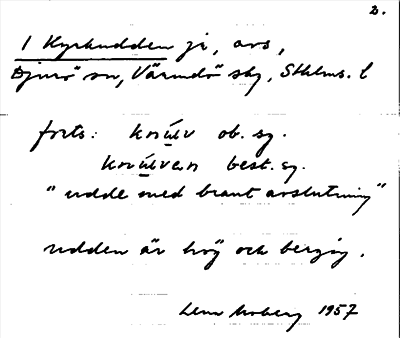 2.
1 Kyrkudden js, avs,
Djurö sn, Värmdö skg, Sthlms. l
forts: knúlv ob. sg.
knúlven best. sg.
"udde med brant avslutning"
udden är hög och bergig.
Lena Moberg 1957